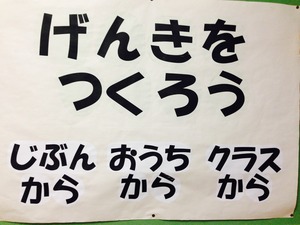 げんきを
つくろう
じぶん おうち クラス
から から から